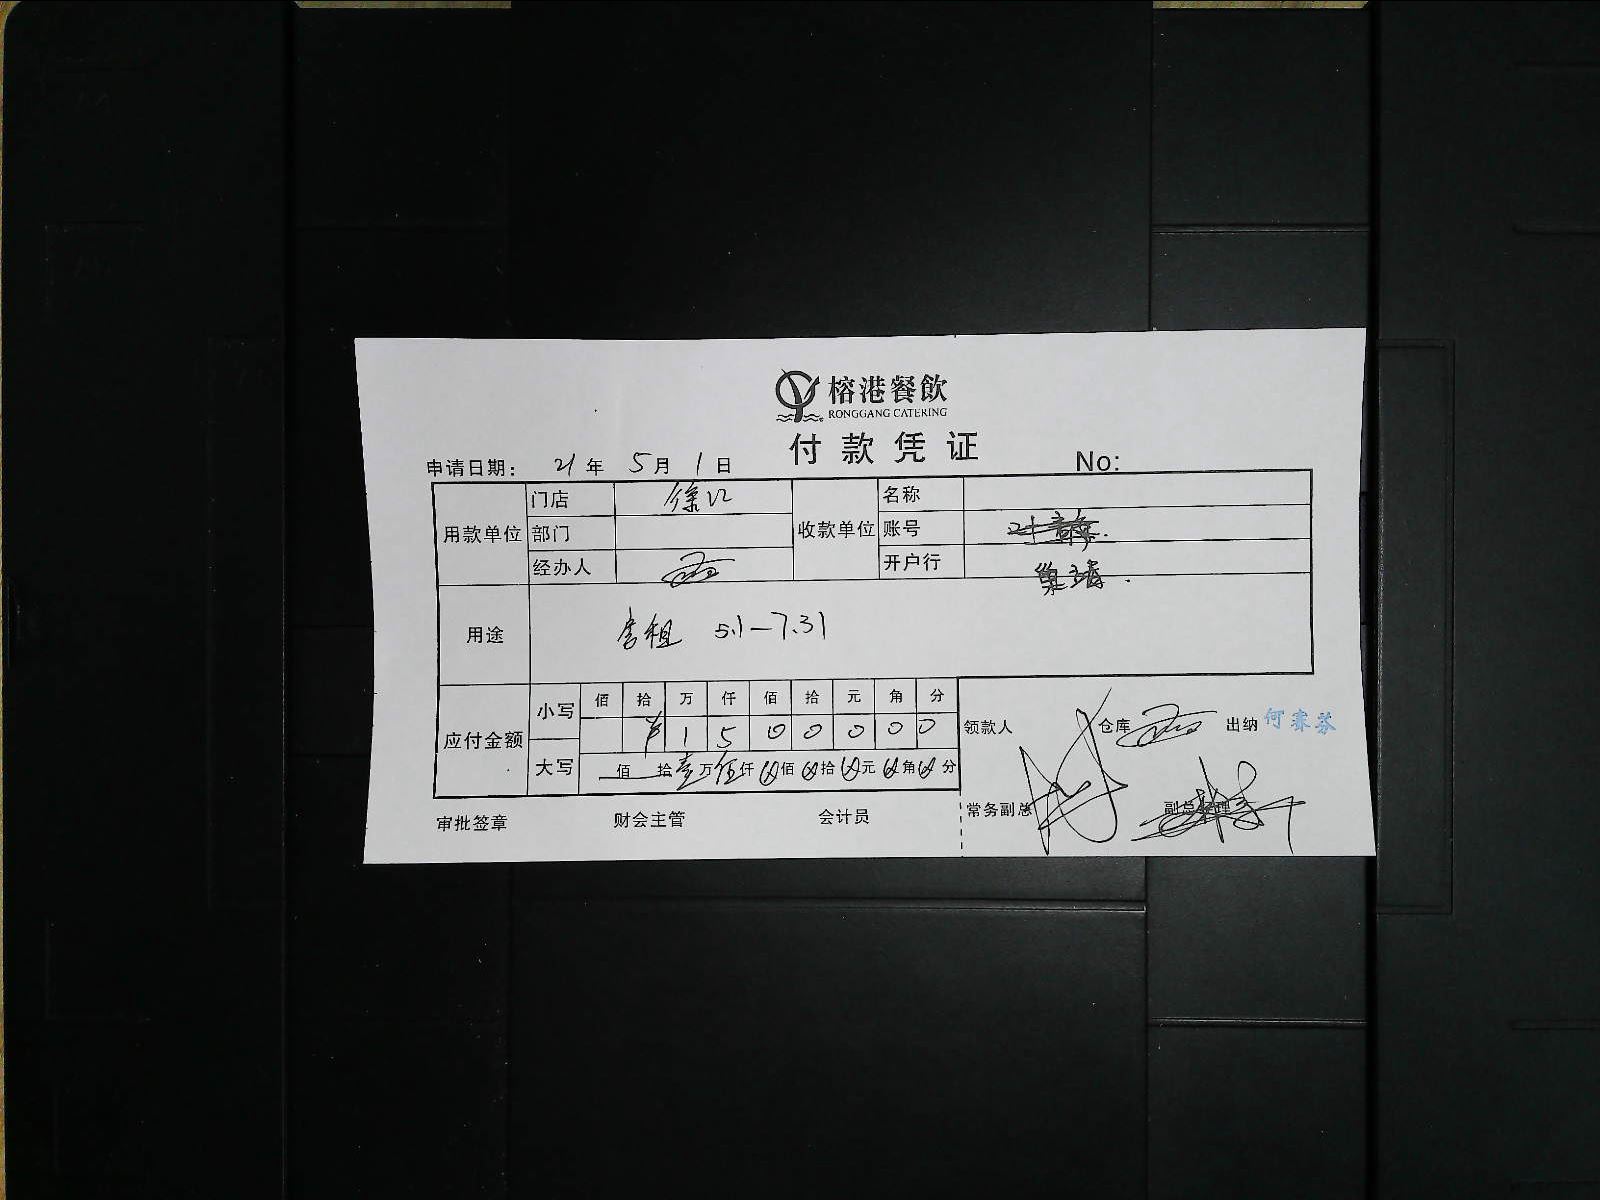 榕港餐飲
RONGGANG CATERING
付款凭证
申请日期: 21年 5月 1日 No:
用款单位 门店 徐汇 收款单位 名称
部门 账号
经办人 开户行
用途 房租 5.1—7.31
应付金额 小写 佰 拾 万 仟 佰 拾 元 角 分
¥ 1 5 0 0 0 0 0
大写 佰 拾 壹万 伍仟 0佰 0拾 0元 0角 0分
领款人 仓库 出纳
常务副总 副总经理
审批签章 财会主管 会计员